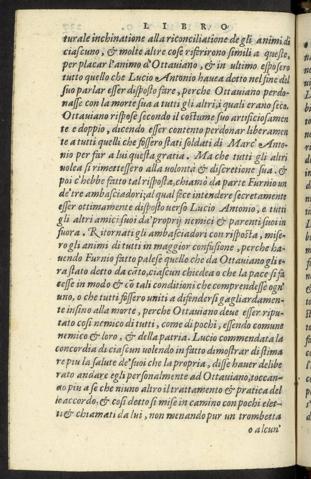 LIBRO
turale inchinatione alla riconciliatione degli animi di
ciascuno, & molte altre cose riferirono simili a queste,
per placar l'animo d'Ottaviano, & in ultimo esposero
tutto quello che Lucio Antonio havea detto nel fine del
suo parlar esser disposto fare, perche Ottaviano perdo-
nasse con la morte sua a tutti gli altri, i quali erano seco.
Ottaviano rispose secondo il costume suo artificiosamen
te e doppio, dicendo esser contento perdonar liberamen
te a tutti quelli che fossero stati soldati di Marc' Anto-
nio per far a lui questa gratia. Ma che tutti gli altri
volea si rimettessero alla volontà & discretione sua. &
poi c'hebbe fatto tal risposta, chiamò da parte Furnio un
de' tre ambasciadori; al qual fece intendere secretamente
esser ottimamente disposto verso Lucio Antonio, e tutti
gli altri amici suoi da' proprij nemici & parenti suoi in
fuora. Ritornati gli ambasciadori con risposta, mise-
ro gli animi di tutti in maggior confusione, perche ha-
vendo Furnio fatto palese quello che da Ottaviano gli e-
ra stato detto da cāto, ciascun chiedea o che la pace si fa
cesse in modo & cō tali conditioni che comprendesse ogn'
uno, o che tutti fossero uniti a difendersi gagliardamen-
te insino alla morte, perche Ottaviano deve esser ripu-
tato così nemico di tutti, come di pochi, essendo comune
nemico & loro, & della patria. Lucio commendata la
concordia di ciascun volendo in fatto dimostrar di stima
re piu la salute de' suoi che la propria, disse haver delibe
rato andare egli personalmente ad Ottaviano, toccan-
do piu a se che niuno altro il trattamento & pratica del
lo accordo, & così detto si mise in camino con pochi elet-
ti & chiamati da lui, non menando pur un trombetta
o alcun'